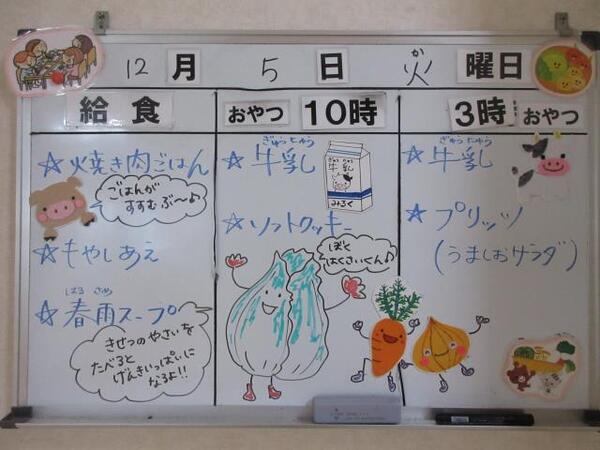 12月 5日 火曜日
か
給食
おやつ 10時
3時 おやつ
☆焼き肉ごはん
ごはんが
すすむぶ〜♪
☆もやしあえ
はる さめ
☆春雨スープ
きせつのやさいを
たべると
げんきいっぱいに
なるよ!!
ぎゅうにゅう
☆牛乳
ぎゅうにゅう
牛乳
みるく
☆ソフトクッキー
ぼく
はくさいくん♪
ぎゅうにゅう
☆牛乳
☆プリッツ
(うましおサラダ)